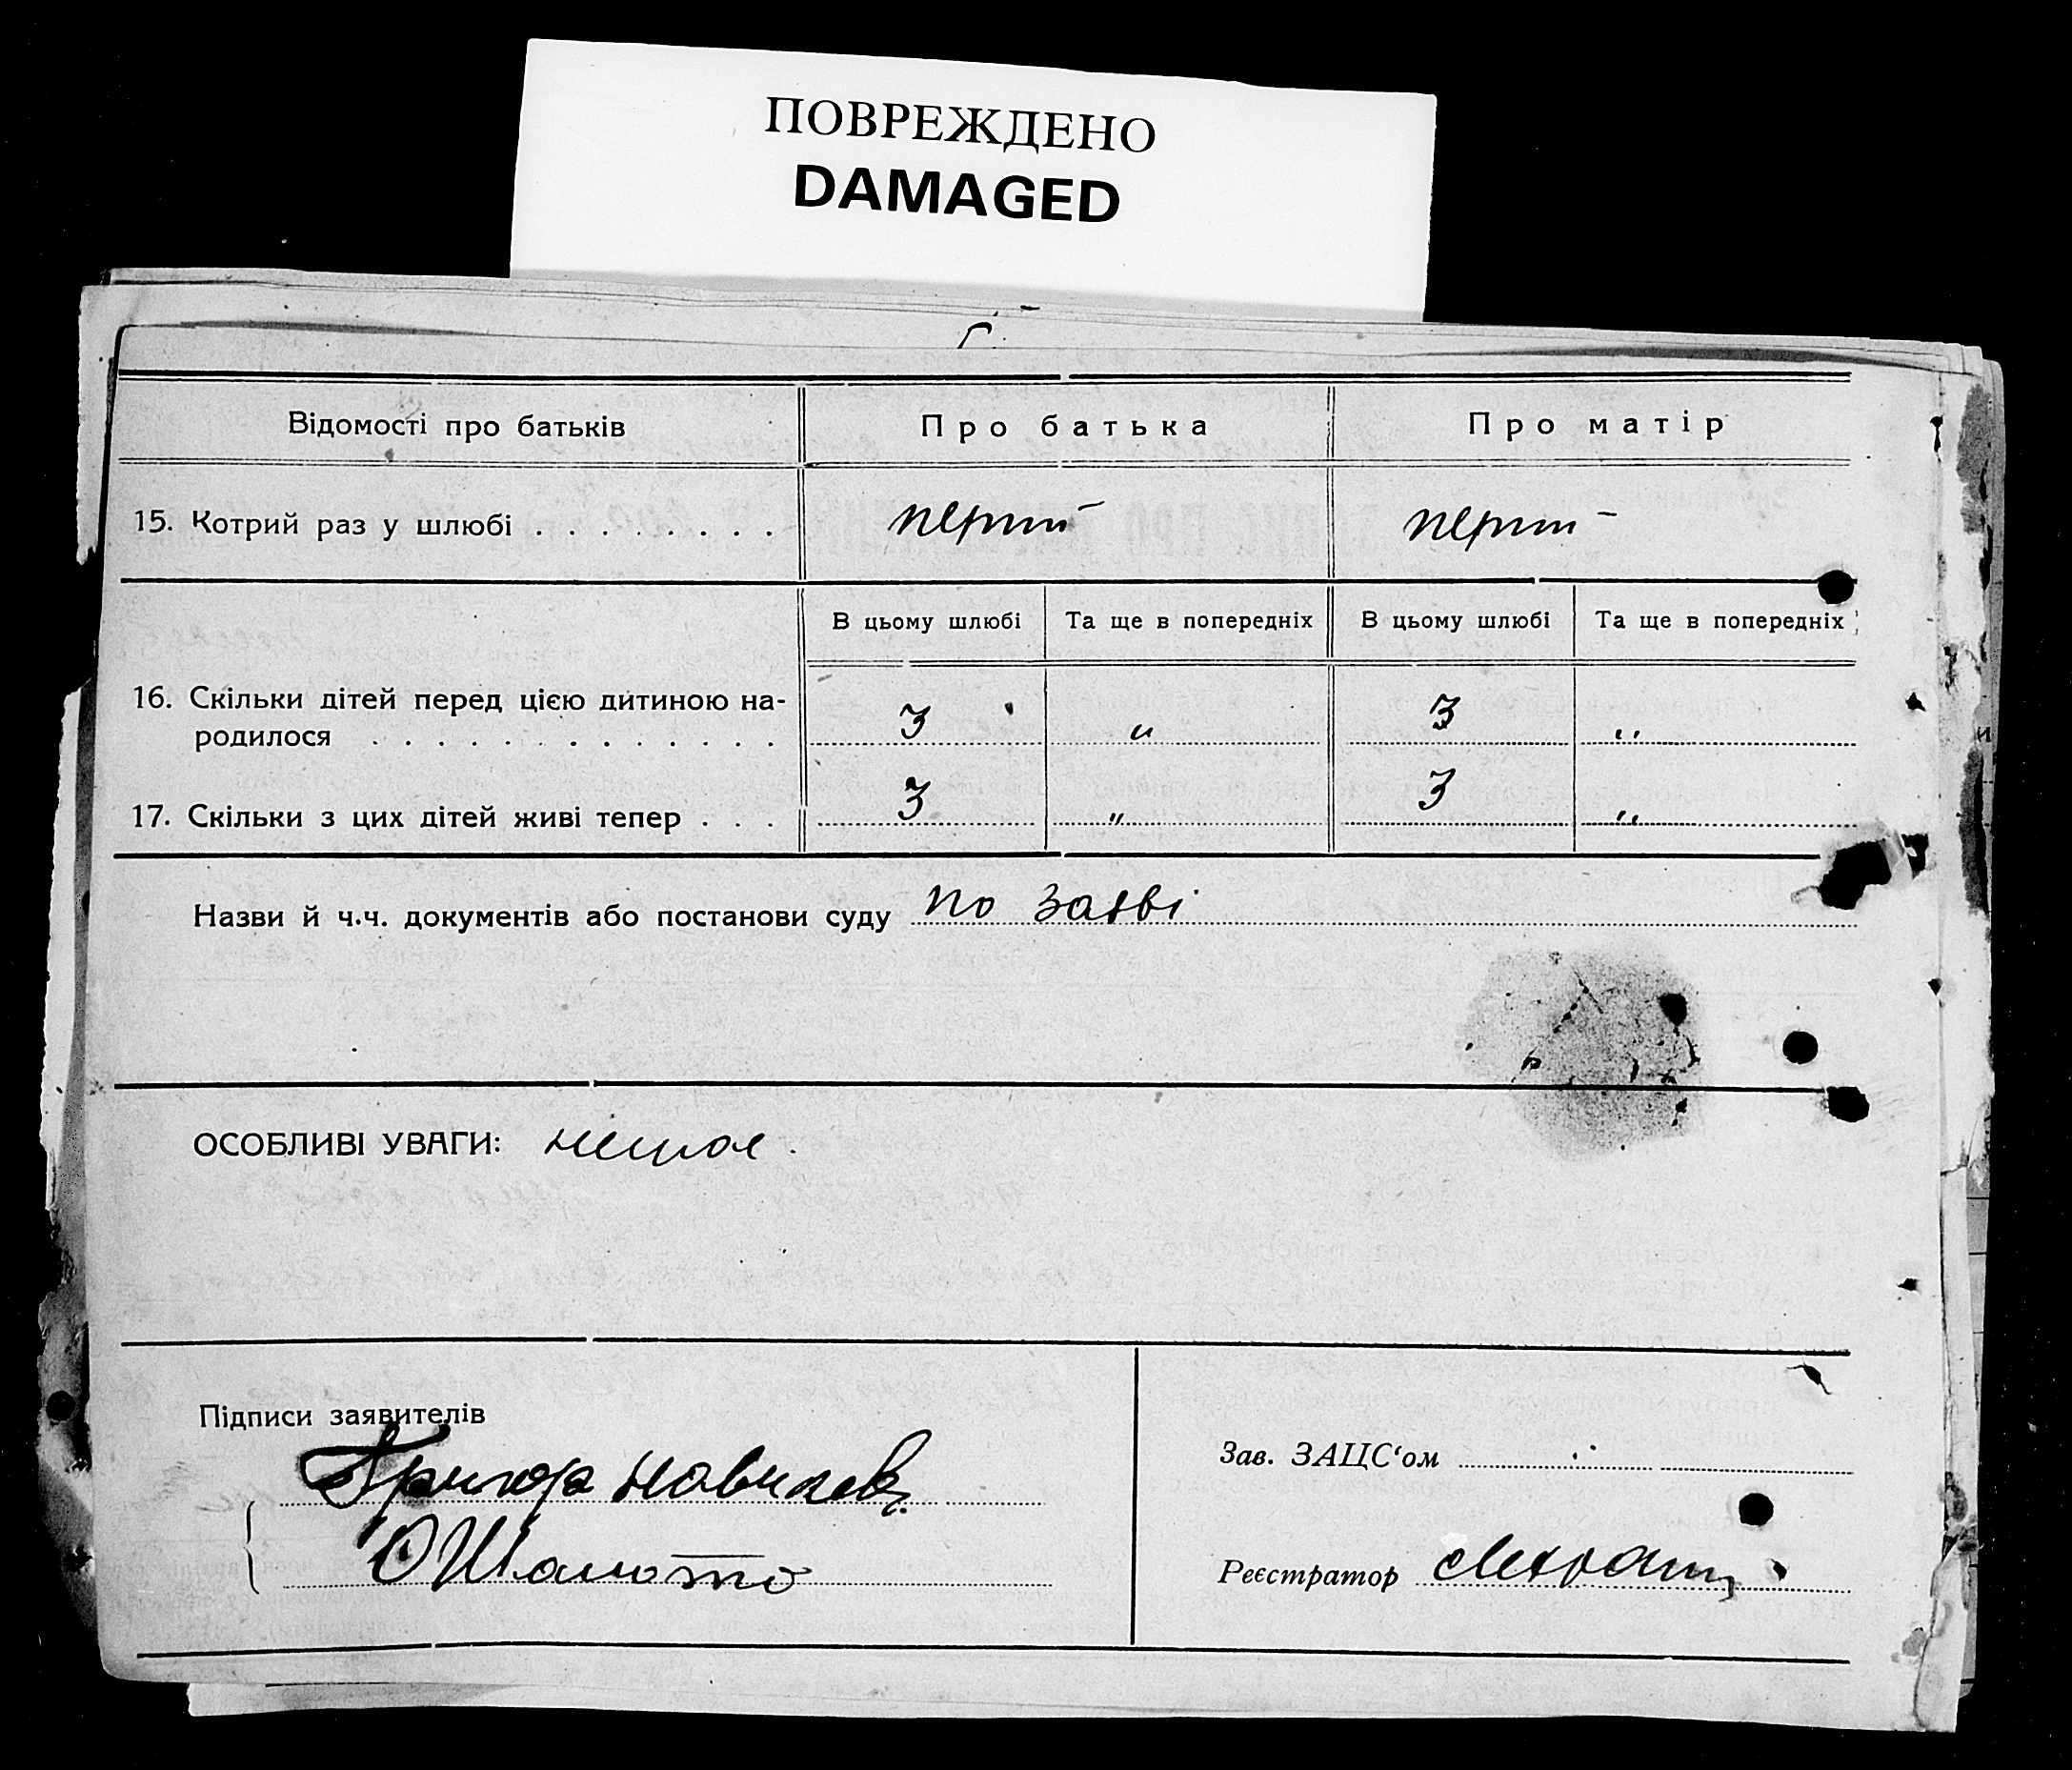 ПОВРЕЖДЕНО
DAMAGED
Відомості про батьків
Про батька
Про матір
15. Котрий раз у шлюбі . . . . . . . .
перший
перший
В цьому шлюбі
Та ще в попередніх
В цьому шлюбі
Та ще в попередніх
16. Скільки дітей перед цією дитиною на-
родилося . . . . . . . . . . . . .
3
"
3
"
17. Скільки з цих дітей живі тепер . . .
3
"
3
"
Назви й ч.ч. документів або постанови суду по заяві
ОСОБЛИВІ УВАГИ: немає.
Підписи заявителів
Зав. ЗАЦС'ом
Реєстратор